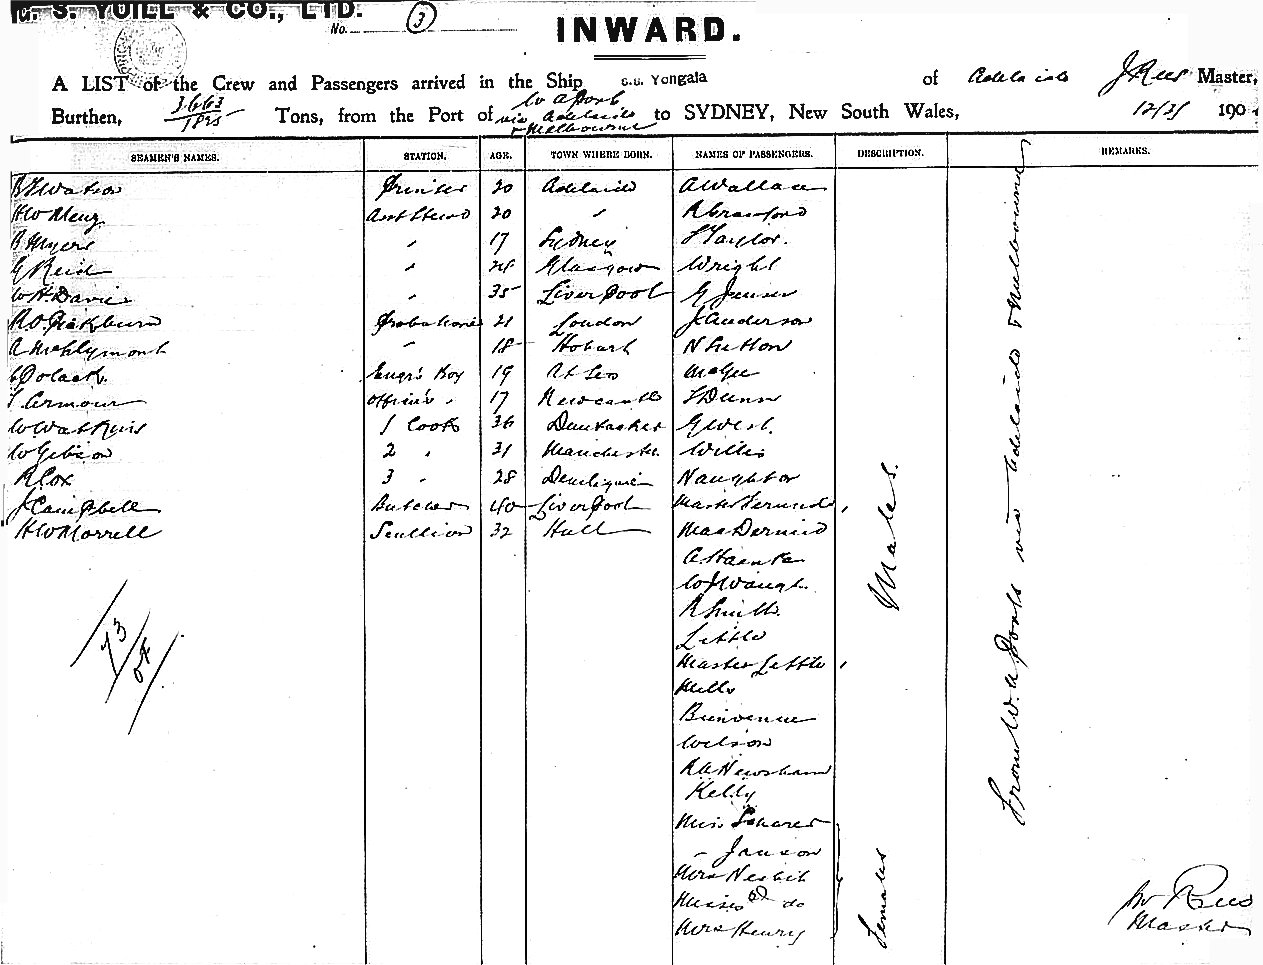 G. S. YUILL & CO., LTD.
No. 3
INWARD.
A LIST of the Crew and Passengers arrived in the Ship S.S. Yongala of Adelaide J Rees Master,
Burthen, 3663/1825 Tons, from the Port of W A Ports via Adelaide & Melbourne to SYDNEY, New South Wales, 190
SEAMEN'S NAMES. STATION. AGE. TOWN WHERE BORN. NAMES OF PASSENGERS. DESCRIPTION. REMARKS.
Watson Printer 20 Adelaide A Wallace
H W Menz Asst Stewd 20 " R Crawford
B Myers " 17 Sydney Taylor.
G Reid " Glasgow Wright
W H Davies " 35 Liverpool G Jensen
Probationer 21 London J Anderson
A McClymont " 18 Hobart N Sutton
Polack Engrs Boy 19 At Sea McGee
Armour Officers " 17 Newcastle Dunn
W Watkins 1 Cook 36 G West.
W Gibson 2 " 31 Manchester Willis
R Cox 3 " 28 Deniliquin Naughton
J Campbell Butcher 40 Liverpool Master
H W Morrell Scullion 32 Hull MacDermid
W J Waugh
R Smith
Little
Master Little
Mills
Bienvenue
Wilson
R A Newsham
Kelly
Miss
" Janson
Mrs Nesbit
Misses do
Mrs Henry
Males.
Females
From W. A. Ports via Adelaide & Melbourne
73/04
Jno Rees
Master